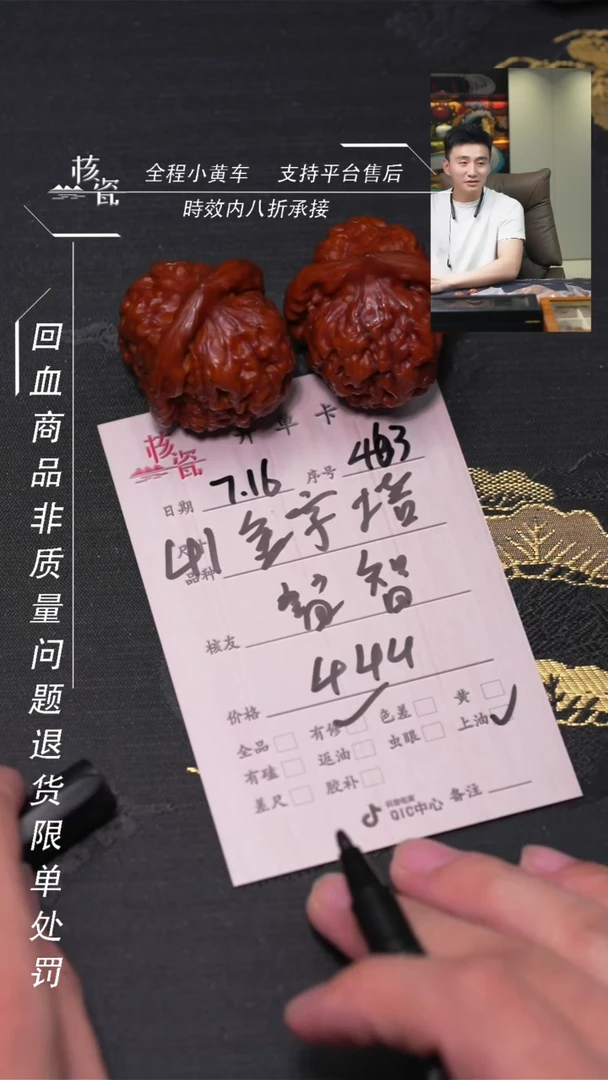 核瓷
全程小黄车 支持平台售后
時效内八折承接
回血商品非质量问题退货限单处罚
核瓷
开单卡
日期 7.16 序号 463
尺寸 41 金字塔
品种
核友 智
价格 444
全品 有修 色差 黄
有磕 返油 虫眼 上油
差尺 胶补
抖音电商
QIC中心 备注